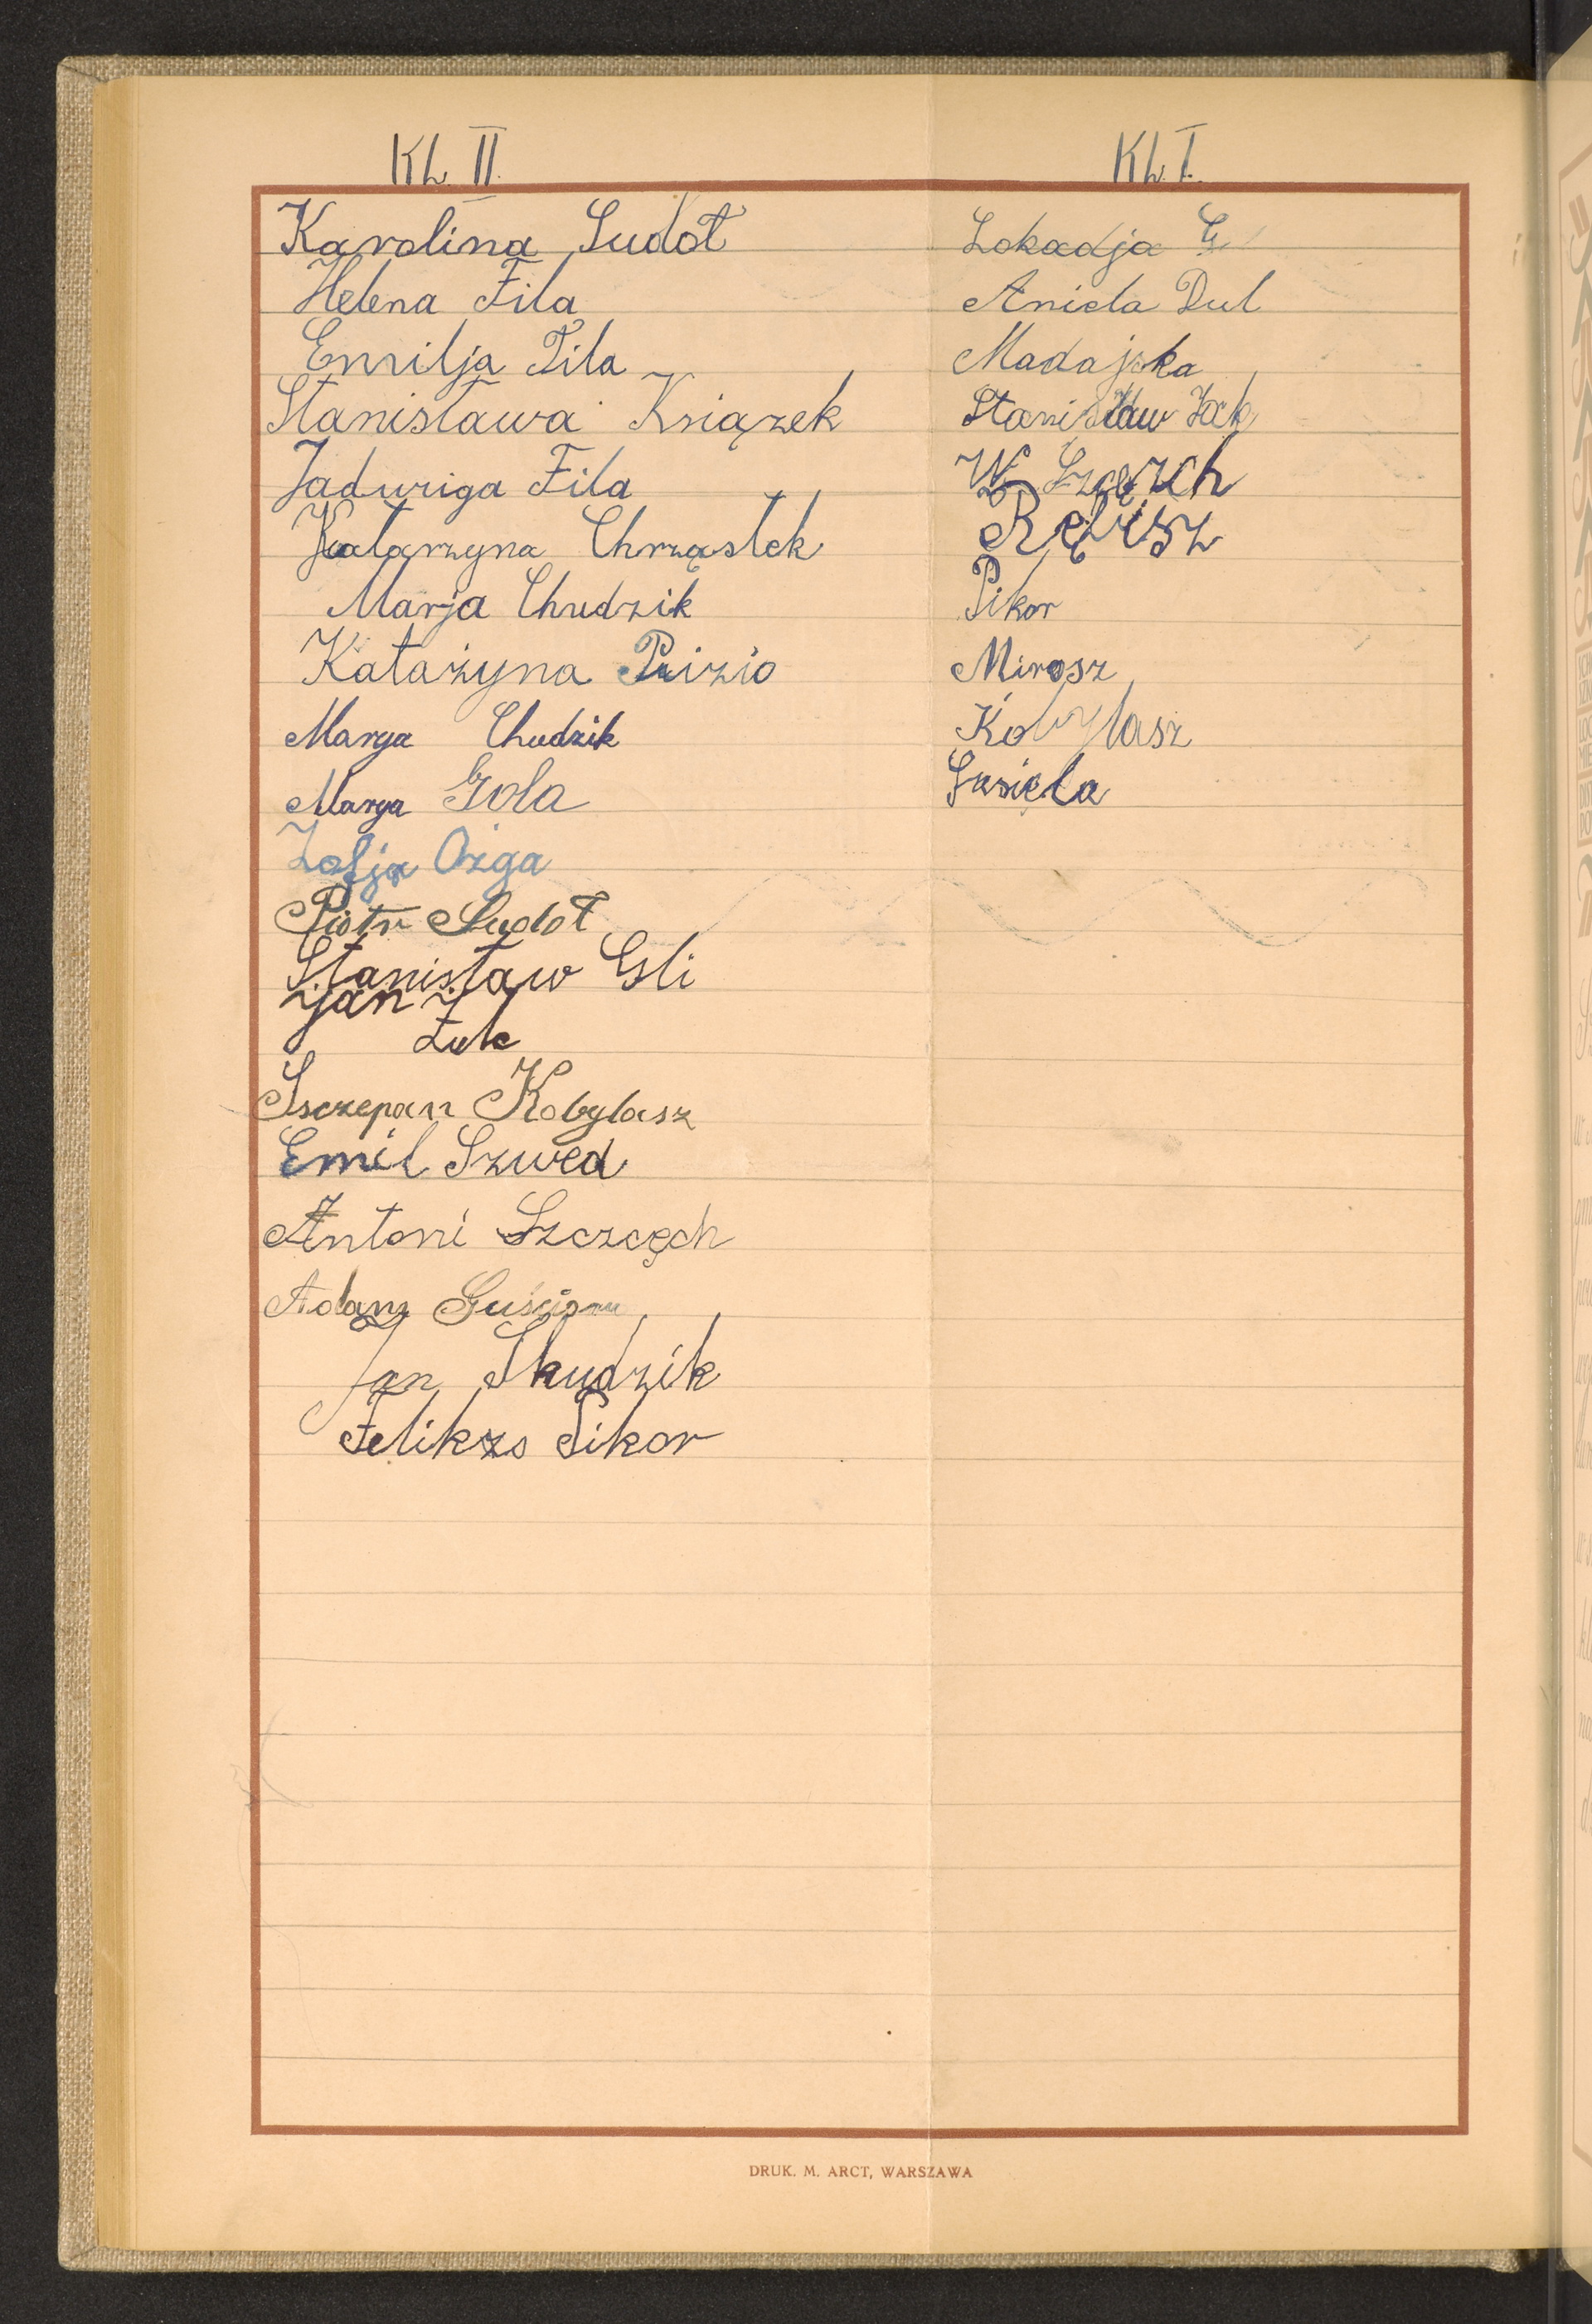 Kl. II.
Karolina Sudoł
Helena Fila
Emilja Fila
Stanisława Książek
Jadwiga Fila
Katarzyna Chrząstek
Marja Chudzik
Katażyna Puizio
Marya Chudzik
Marya Gola
Zofja Ożga
Piotr Sudoł
Stanisław Gli
Jan
Żuk
Sszczepan Kobylasz
Emil Szwed
Antoni Szczęch
Adam
Jan Skudzik
Felikzs Sikor
Kl. I.
Lokadja
Aniela Dul
Madajska
Stanisław Żak
W
Rębisz
Pikor
Mirosz
Kobylasz
DRUK. M. ARCT, WARSZAWA